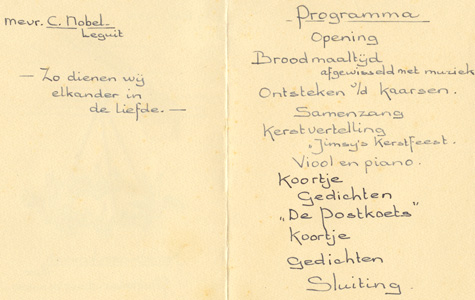 mevr. C. Nobel-
Leguit
— Zo dienen wij
elkander in
de liefde. —
- Programma
Opening
Broodmaaltijd
afgewisseld met muziek
Ontsteken v/d Kaarsen.
Samenzang
Kerstvertelling
"Jimsy's Kerstfeest.
Viool en piano.
Koortje
Gedichten
„De Postkoets"
Koortje
Gedichten
Sluiting.